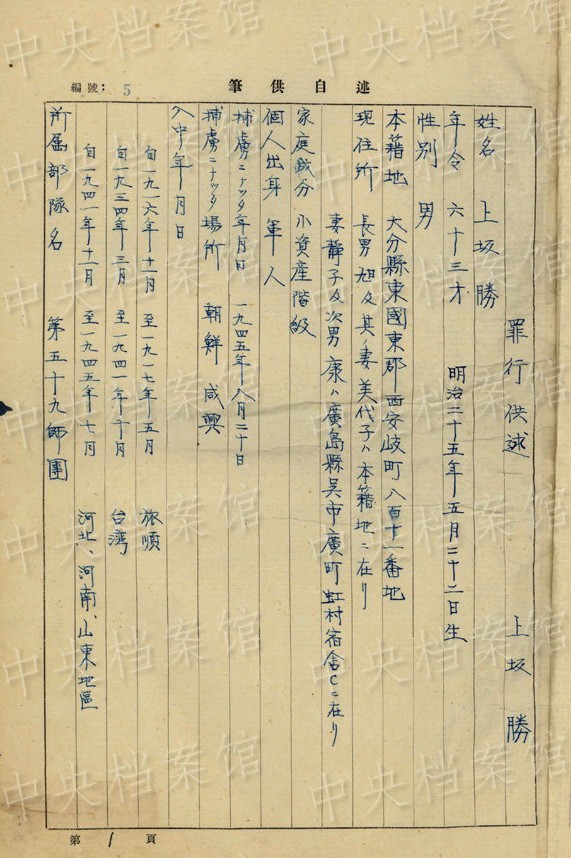 述自供筆
編號：5
罪行供述　上坂　勝
姓名　上坂勝
年令　六十三才　明治二十五年五月二十二日生
性別　男
本籍地　大分縣東國東郡西安岐町八百十一番地
現住所　長男旭及其ノ妻美代子ハ本籍地ニ在リ
妻靜子及次男康ハ廣島縣吳市廣町虹村宿舍Cニ在リ
家庭成分　小資產階級
個人出身　軍人
捕虜ニナッタ年月日　一九四五年八月二十日
捕虜ニナッタ場所　朝鮮咸興
入中年月日
自一九一六年十一月　至一九一七年五月　旅順
自一九三四年三月　至一九四一年十月　台湾
自一九四一年十一月　至一九四五年七月　河北、河南、山東地區
所屬部隊名　第五十九師團
第1頁
中央档案馆